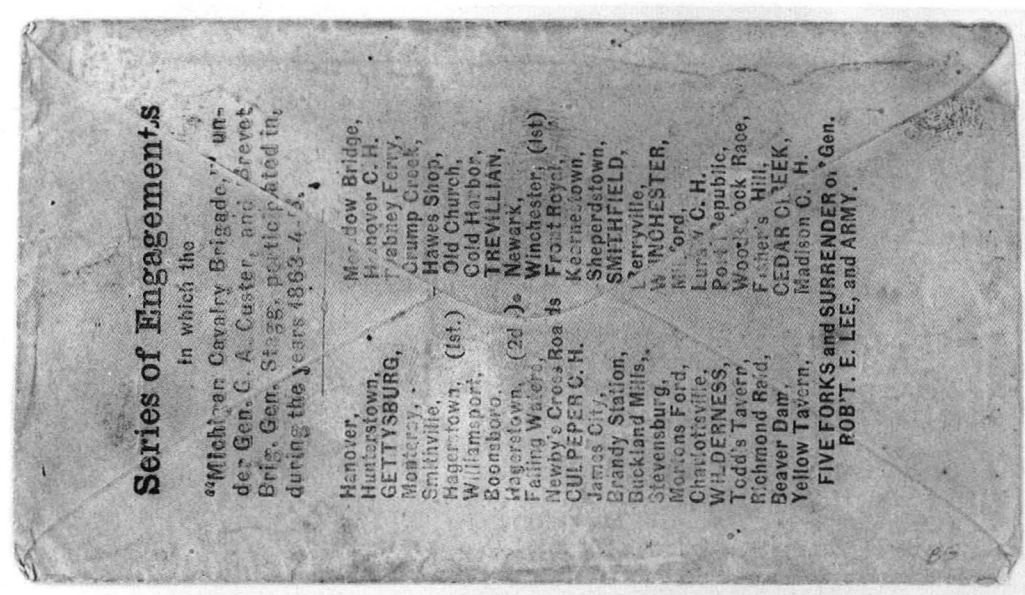 Series of Engagements
in which the
"Michigan Cavalry Brigade," un-
der Gen. G. A. Custer, and Brevet
Brig. Gen. Stagg, participated in,
during the years 1863-4-5.
Hanover,
Hunterstown,
GETTYSBURG,
Monterey,
Smithville,
Hagerstown, (1st.)
Williamsport,
Boonsboro.
Hagerstown, (2d ).
Falling Waters,
Newby's Cross Roads
CULPEPER C. H.
James City,
Brandy Station,
Buckland Mills,
Stevensburg,
Mortons Ford,
Charlottsville,
WILDERNESS,
Todd's Tavern,
Richmond Raid,
Beaver Dam,
Yellow Tavern.
Meadow Bridge,
Hanover C. H.
Dabney Ferry,
Crump Creek,
Hawes Shop,
Old Church,
Cold Harbor,
TREVILLIAN,
Newark,
Winchester, (1st)
Front Royal,
Kearnestown,
Sheperdstown,
SMITHFIELD,
Berryville,
WINCHESTER,
Milford,
Luray C. H.
Port Republic,
Woodstock Race,
Fisher's Hill,
CEDAR CREEK,
Madison C. H.
FIVE FORKS and SURRENDER of Gen.
ROB'T. E. LEE, and ARMY.